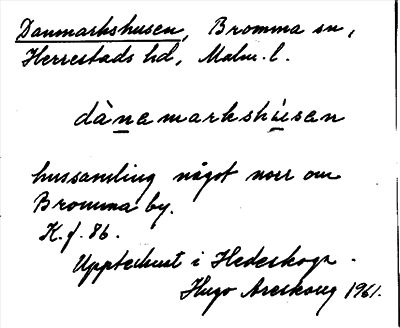 Danmarkshusen, Bromma sn,
Herrestads hd, Malm. l.
dànamarkshúsan
hussamling något norr om
Bromma by.
K. f. 86.
Upptecknat i Hedeskoga.
Hugo Areskoug 1961.